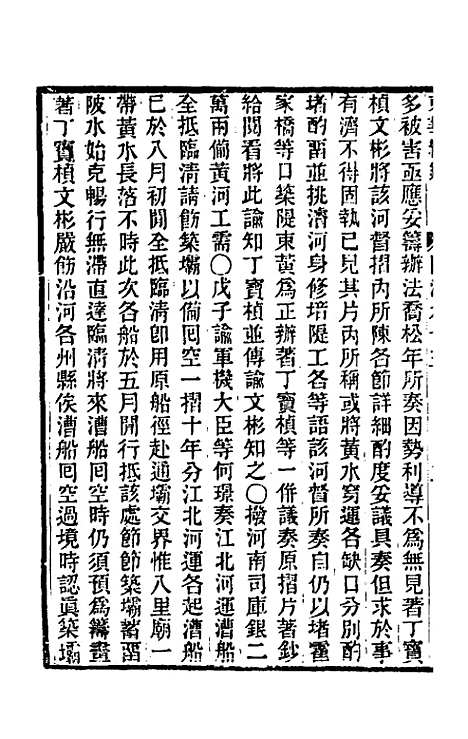 多被害亟應妥籌辦法喬松年所奏因勢利導不爲無見著丁寶
楨文彬將該河督摺內所陳各節詳細酌度妥議具奏但求於事
有濟不得固執已見其片內所稱或將黃水窮運各缺口分別酌
堵酌畱並挑濬河身修培隄工各等語該河督所奏自仍以堵霍
家橋等口築隄束黃爲正辦著丁寶楨等一併議奏原摺片著鈔
給閱看將此諭知丁寶楨並傳諭文彬知之○撥河南司庫銀二
萬兩備黃河工需○戊子諭軍機大臣等何璟奏江北河運漕船
全抵臨清請飭築壩以備囘空一摺十年分江北河運各起漕船
已於八月初間全抵臨清卽用原船徑赴通壩交界惟八里廟一
帶黃水長落不時此次各船於五月開行抵該處節節築壩蓄畱
陂水始克暢行無滯直達臨清將來漕船囘空時仍須預爲籌畫
著丁寶楨文彬嚴飭沿河各州縣俟漕船囘空過境時認眞築壩